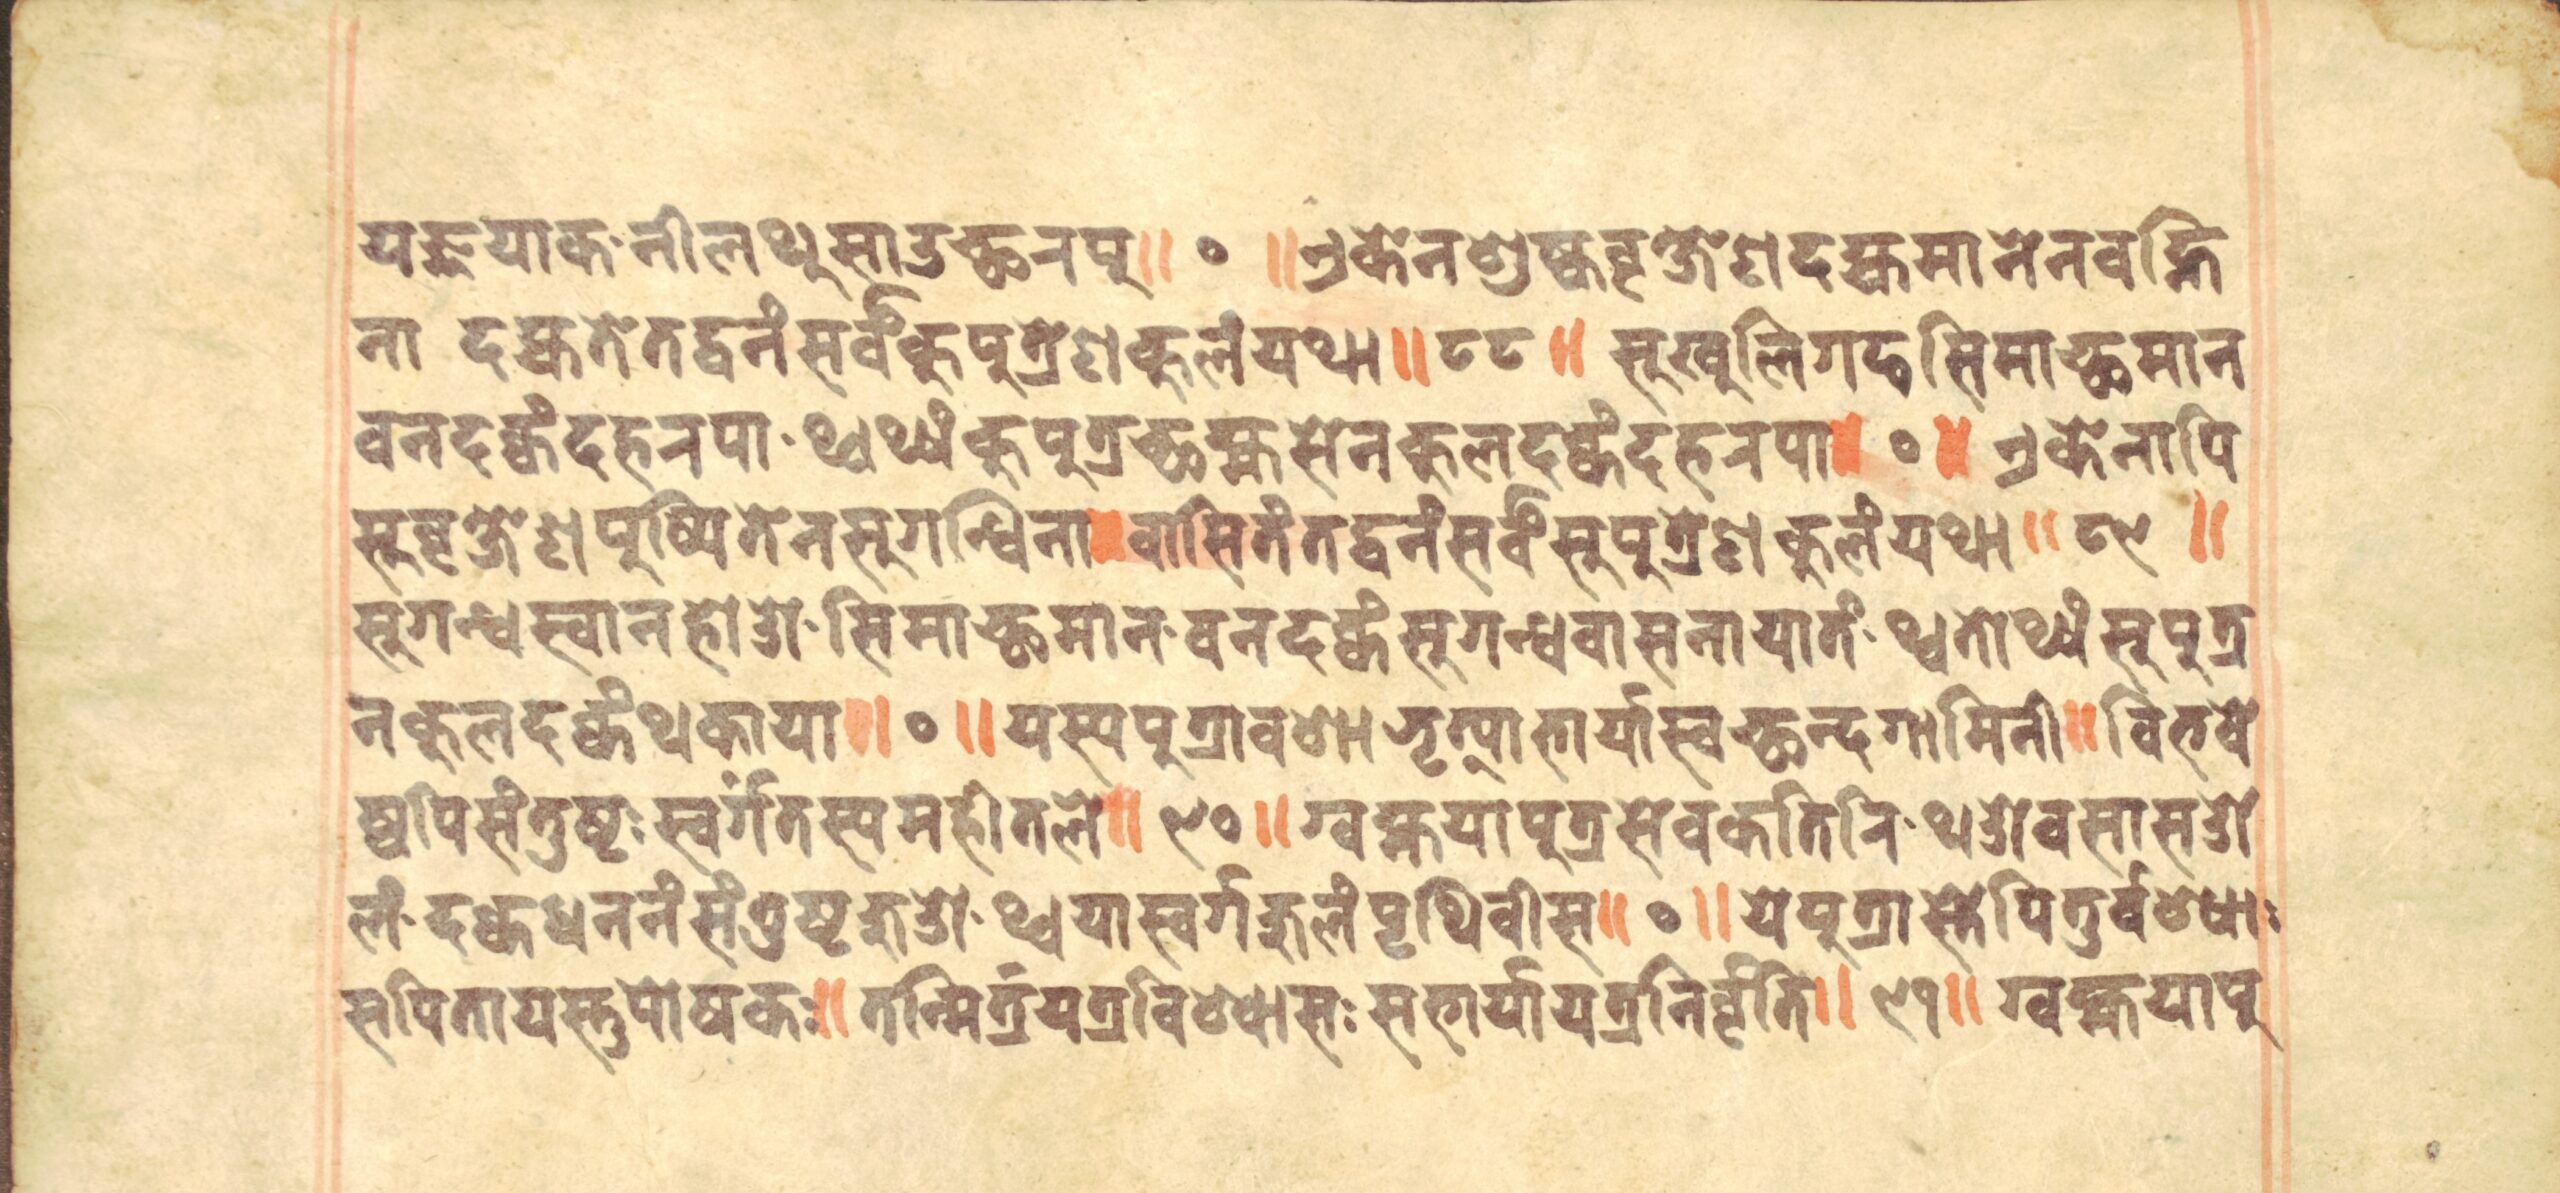 यङ्कयाक·नीलथुसाउच्छनपु॥ ० ॥एकेनशुष्कवृक्षेणदह्यमानेनवह्नि
ना दह्यतेतद्वनंसर्वंकुपुत्रेणकुलंयथा॥८८॥ सुखुलिगदसिमाच्छमान
वनदक्वंदहनपा·थ्वथ्यंकुपुत्रच्छह्मसेनकुलदक्वंदहनपा॥०॥ एकेनापि
सुवृक्षेणपुष्पितेनसुगन्धिना॥वासितंतद्वनंसर्वंसुपुत्रेणकुलंयथा॥८९ ॥
सुगन्धस्वानहोओ·सिमाच्छमान·वनदक्वंसुगन्धवासनायातं·थ्वतोथ्यंसुपुत्र
नकुलदक्वंथकाया॥०॥यस्यपुत्रावशा भृत्याभार्यास्वच्छन्दगामिनी॥विभवे
ष्वपिसंतुष्टःस्वर्गंतस्यमहीतले॥९०॥ग्वह्मयापुत्रसेवकतिनि·थओवसासओ
लं·दक्वधननंसंतुष्टजुओ·थ्वयास्वर्गजुलंपृथिवीस॥०॥येपुत्रास्तेपितुर्वशेधाः
सपितायस्तुपोषकः॥ तन्मित्रंयत्रविश्वासःसभार्यायत्रनिर्वृति॥९१॥ ग्वह्मयापु